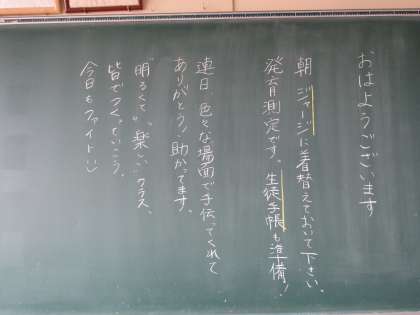 おはようございます
朝 ジャージに着替えておいて下さい。
発育測定です。生徒手帳も準備!
連日、色々な場面で手伝ってくれて
ありがとう!助かってます。
"明るくて"、"楽しい"クラス、
皆でつくっていこう。
今日もファイト!!